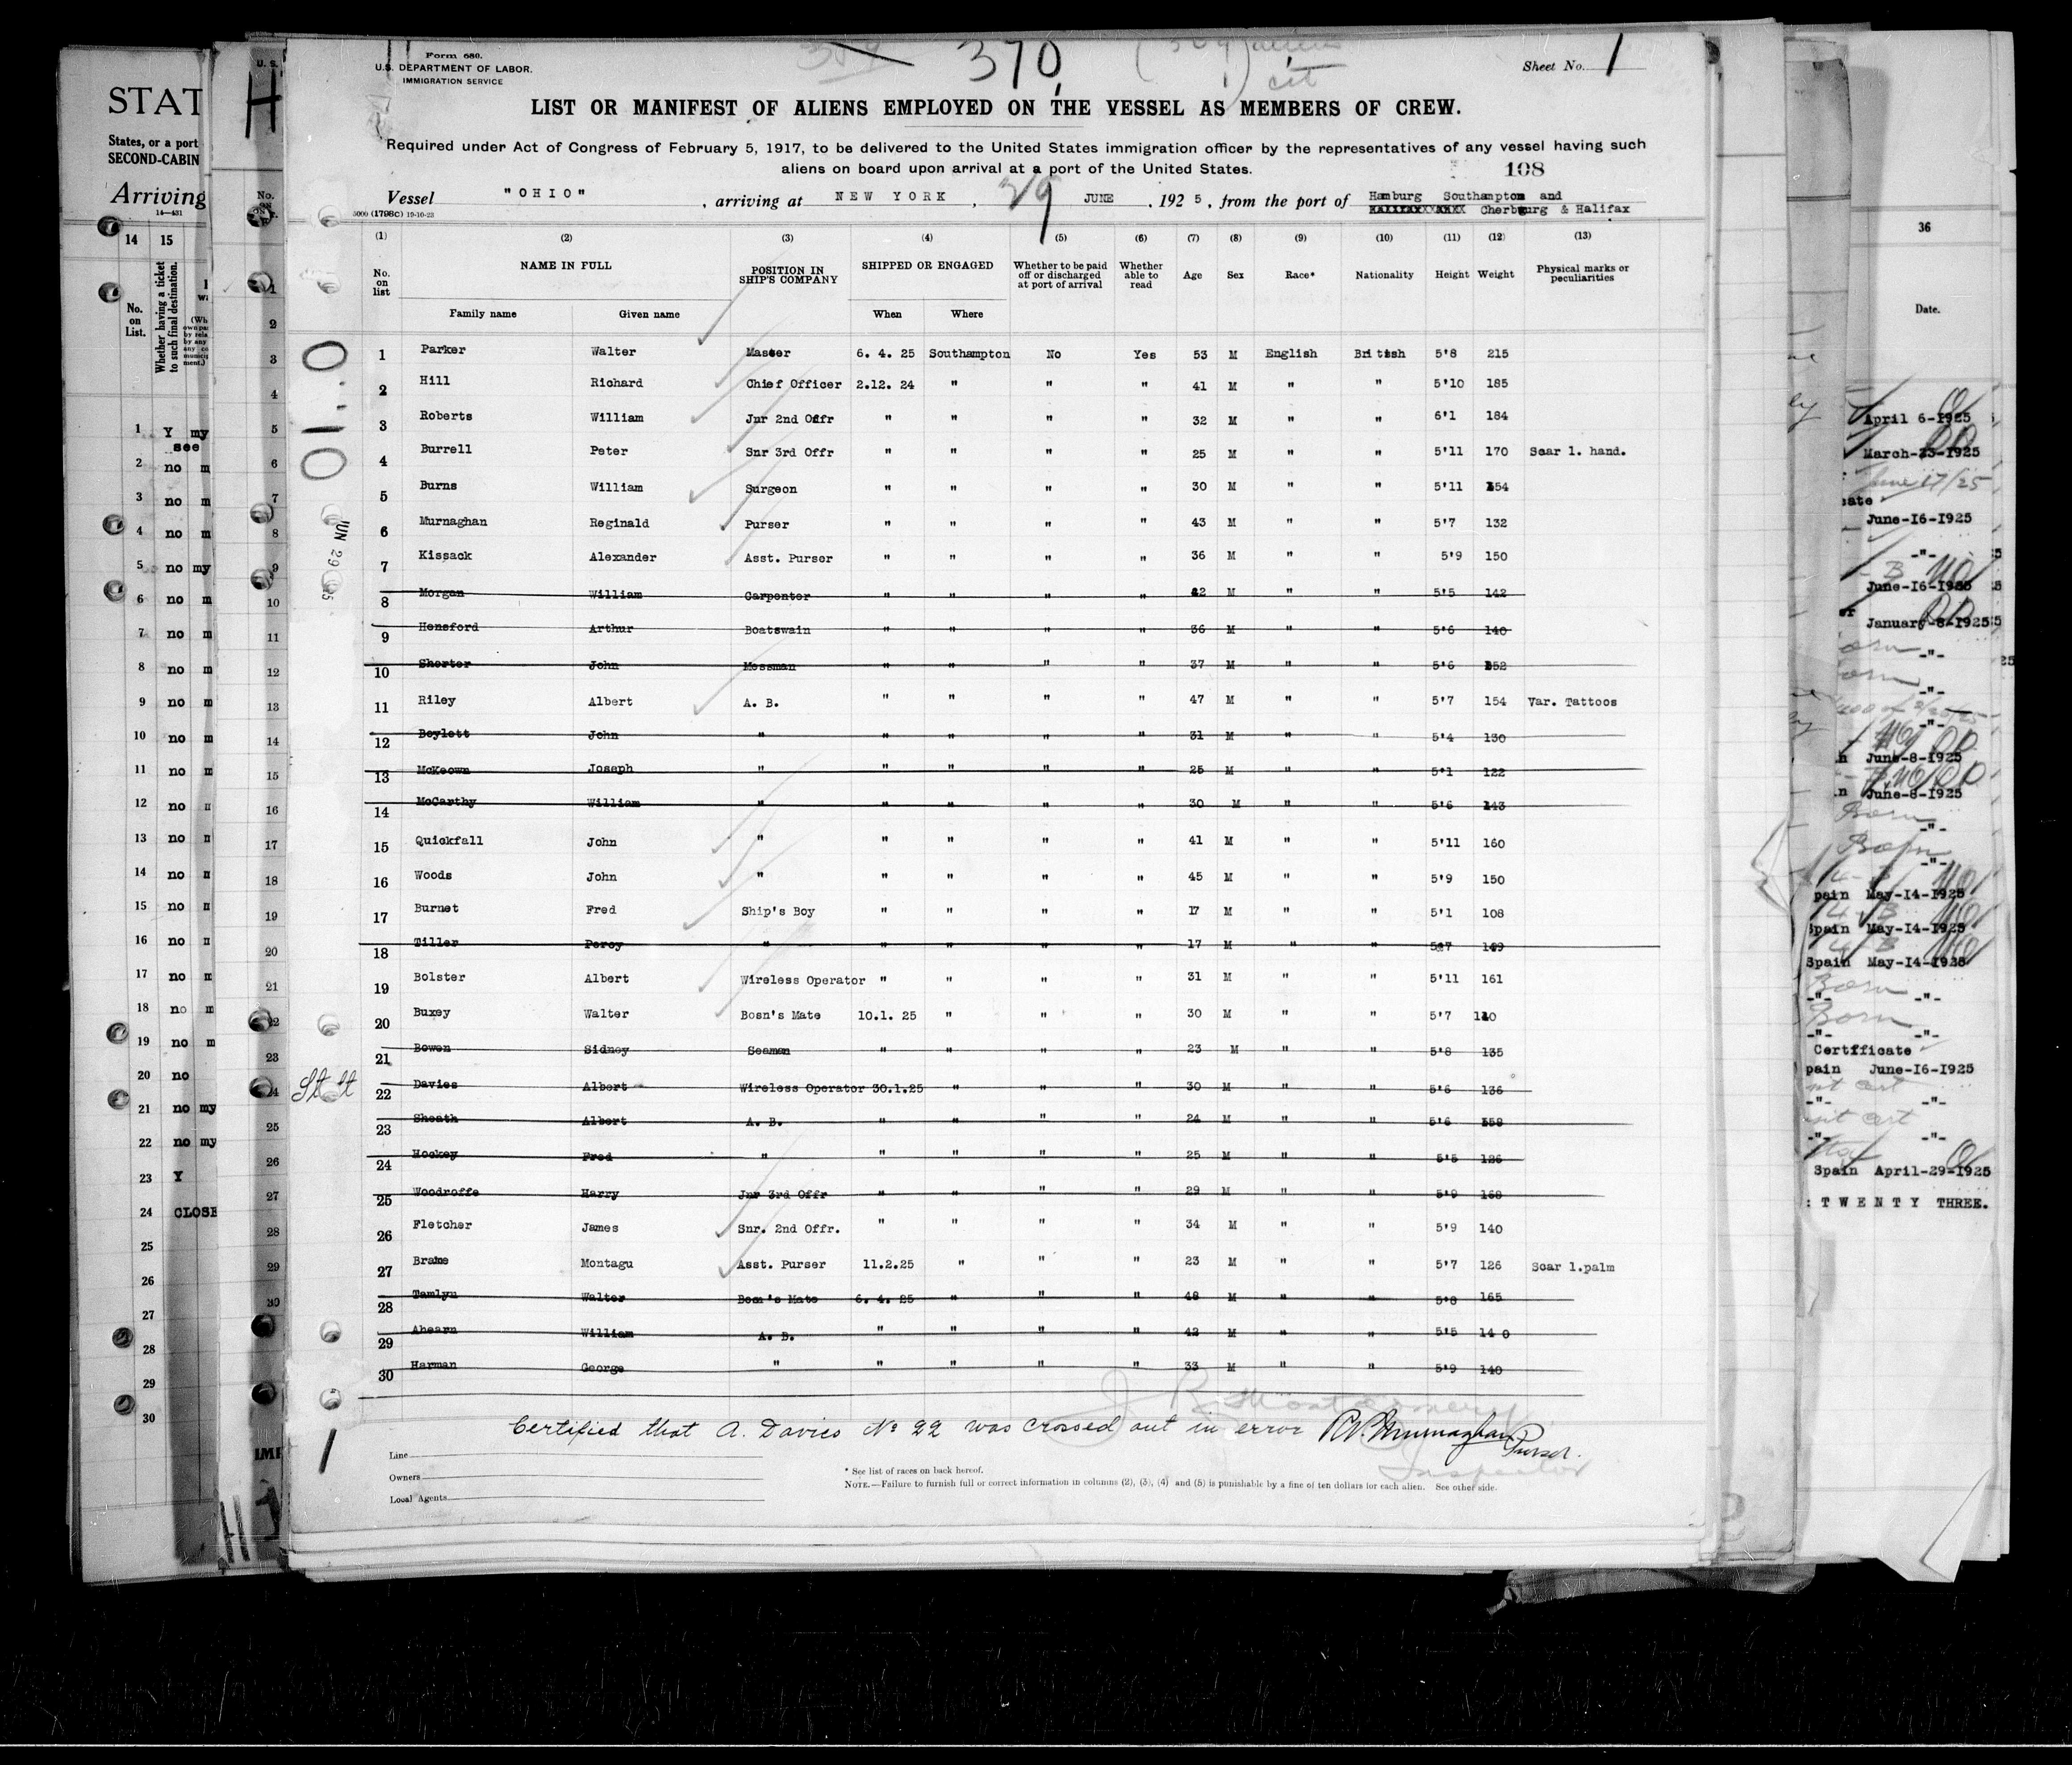 Form 680.
U.S. DEPARTMENT OF LABOR.
IMMIGRATION SERVICE
370
Sheet No. 1
LIST OR MANIFEST OF ALIENS EMPLOYED ON THE VESSEL AS MEMBERS OF CREW.
Required under Act of Congress of February 5, 1917, to be delivered to the United States immigration officer by the representatives of any vessel having such
aliens on board upon arrival at a port of the United States.
108
Vessel "OHIO", arriving at NEW YORK, 29 JUNE, 1925, from the port of Hamburg Southampton and
Cherbourg & Halifax
5000 (1798C) 19-10-23
(1) (2) (3) (4) (5) (6) (7) (8) (9) (10) (11) (12) (13)
No. on list NAME IN FULL POSITION IN SHIP'S COMPANY SHIPPED OR ENGAGED Whether to be paid off or discharged at port of arrival Whether able to read Age Sex Race* Nationality Height Weight Physical marks or peculiarities
Family name Given name When Where
1 Parker Walter Master 6. 4. 25 Southampton No Yes 53 M English British 5'8 215
2 Hill Richard Chief Officer 2.12. 24 " " " 41 M " " 5'10 185
3 Roberts William Jnr 2nd Offr " " " " 32 M " " 6'1 184
4 Burrell Peter Snr 3rd Offr " " " " 25 M " " 5'11 170 Scar l. hand.
5 Burns William Surgeon " " " " 30 M " " 5'11 154
6 Murnaghan Reginald Purser " " " " 43 M " " 5'7 132
7 Kissack Alexander Asst. Purser " " " " 36 M " " 5'9 150
8 Morgan William Carpenter " " " " 42 M " " 5'5 142
9 Hensford Arthur Boatswain " " " " 36 M " " 5'6 140
10 Shorter John Messman " " " " 37 M " " 5'6 152
11 Riley Albert A. B. " " " " 47 M " " 5'7 154 Var. Tattoos
12 Boylett John " " " " " 31 M " " 5'4 130
13 McKeown Joseph " " " " " 25 M " " 5'1 122
14 McCarthy William " " " " " 30 M " " 5'6 143
15 Quickfall John " " " " " 41 M " " 5'11 160
16 Woods John " " " " " 45 M " " 5'9 150
17 Burnet Fred Ship's Boy " " " " 17 M " " 5'1 108
18 Tiller Percy " " " " " 17 M " " 5'7 149
19 Bolster Albert Wireless Operator " " " " 31 M " " 5'11 161
20 Buxey Walter Bosn's Mate 10.1. 25 " " " 30 M " " 5'7
21 Bowen Sidney Seaman " " " " 23 M " " 5'8 135
22 Davies Albert Wireless Operator 30.1.25 " " " 30 M " " 5'6 136
23 Sheath Albert A. B. " " " " 24 M " " 5'6 158
24 Hockey Fred " " " " " 25 M " " 5'5 126
25 Woodroffe Harry Jnr 3rd Offr " " " " 29 M " " 5'9 168
26 Fletcher James Snr. 2nd Offr. " " " " 34 M " " 5'9 140
27 Brame Montagu Asst. Purser 11.2.25 " " " 23 M " " 5'7 126 Scar l.palm
28 Tamlyn Walter Bosn's Mate 6. 4. 25 " " " 48 M " " 5'8 165
29 Ahearn William A. B. " " " " 42 M " " 5'5 140
30 Harman George " " " " " 33 M " " 5'9 140
JUN 29
Certified that A. Davies No 22 was crossed out in error R.V. Murnaghan
Purser.
Inspector
1
Line
Owners
Local Agents
* See list of races on back hereof.
NOTE.—Failure to furnish full or correct information in columns (2), (3), (4) and (5) is punishable by a fine of ten dollars for each alien. See other side.
STAT
States, or a port
SECOND-CABIN
Arriving
14—431
14 15
No. on List.
Whether having a ticket to such final destination.
1 Y my
see
2 no m
3 no m
4 no m
5 no my
6 no m
7 no m
8 no m
9 no m
10 no m
11 no m
12 no
13 no
14 no
15 no
16 no
17 no m
18 no m
19 no m
20 no
21 no my
22 no my
23 Y
24 CLOSE
25
26
27
28
29
30
36
Date.
April 6-1925
March-23-1925
June 17/25
June-16-1925
-"-
June-16-1925
January-8-1925
-"-
-"-
-"-
June-8-1925
June-8-1925
Born
-"-
Born
-"-
pain May-14-1925
Spain May-14-1925
Spain May-14-1925
Born
-"- -"-
Born
-"- -"-
Certfficate
pain June-16-1925
-"- -"-
-"- -"-
Spain April-29-1925
: TWENTY THREE.